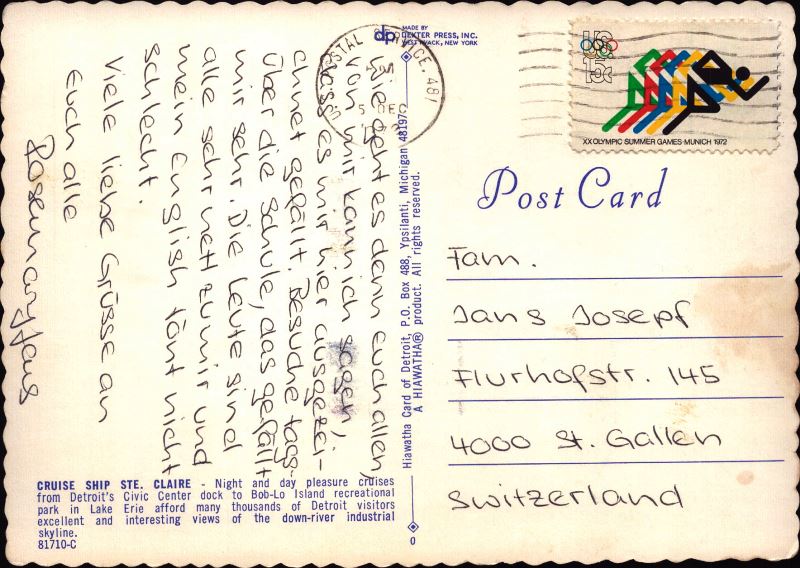 MADE BY
dp DEXTER PRESS, INC.
WEST NYACK, NEW YORK
US
15c
XX OLYMPIC SUMMER GAMES·MUNICH 1972
U.S. POSTAL SERVICE, 481
5 DEC
Post Card
Fam.
Jans Josepf
Flurhofstr. 145
4000 St. Gallen
Switzerland
Wie geht es denn euch allen,
von mir kann ich sagen,
dass es mir hier ausgezei-
chnet gefällt. Besuche tags-
über die Schule, das gefällt
mir sehr. Die Leute sind
alle sehr nett zu mir und
mein English tönt nicht
schlecht.
Viele liebe Grüsse an
euch alle
Rosemary Jans
Hiawatha Card of Detroit, P.O. Box 488, Ypsilanti, Michigan 48197
A HIAWATHA® product. All rights reserved.
CRUISE SHIP STE. CLAIRE - Night and day pleasure cruises
from Detroit's Civic Center dock to Bob-Lo Island recreational
park in Lake Erie afford many thousands of Detroit visitors
excellent and interesting views of the down-river industrial
skyline.
81710-C
0